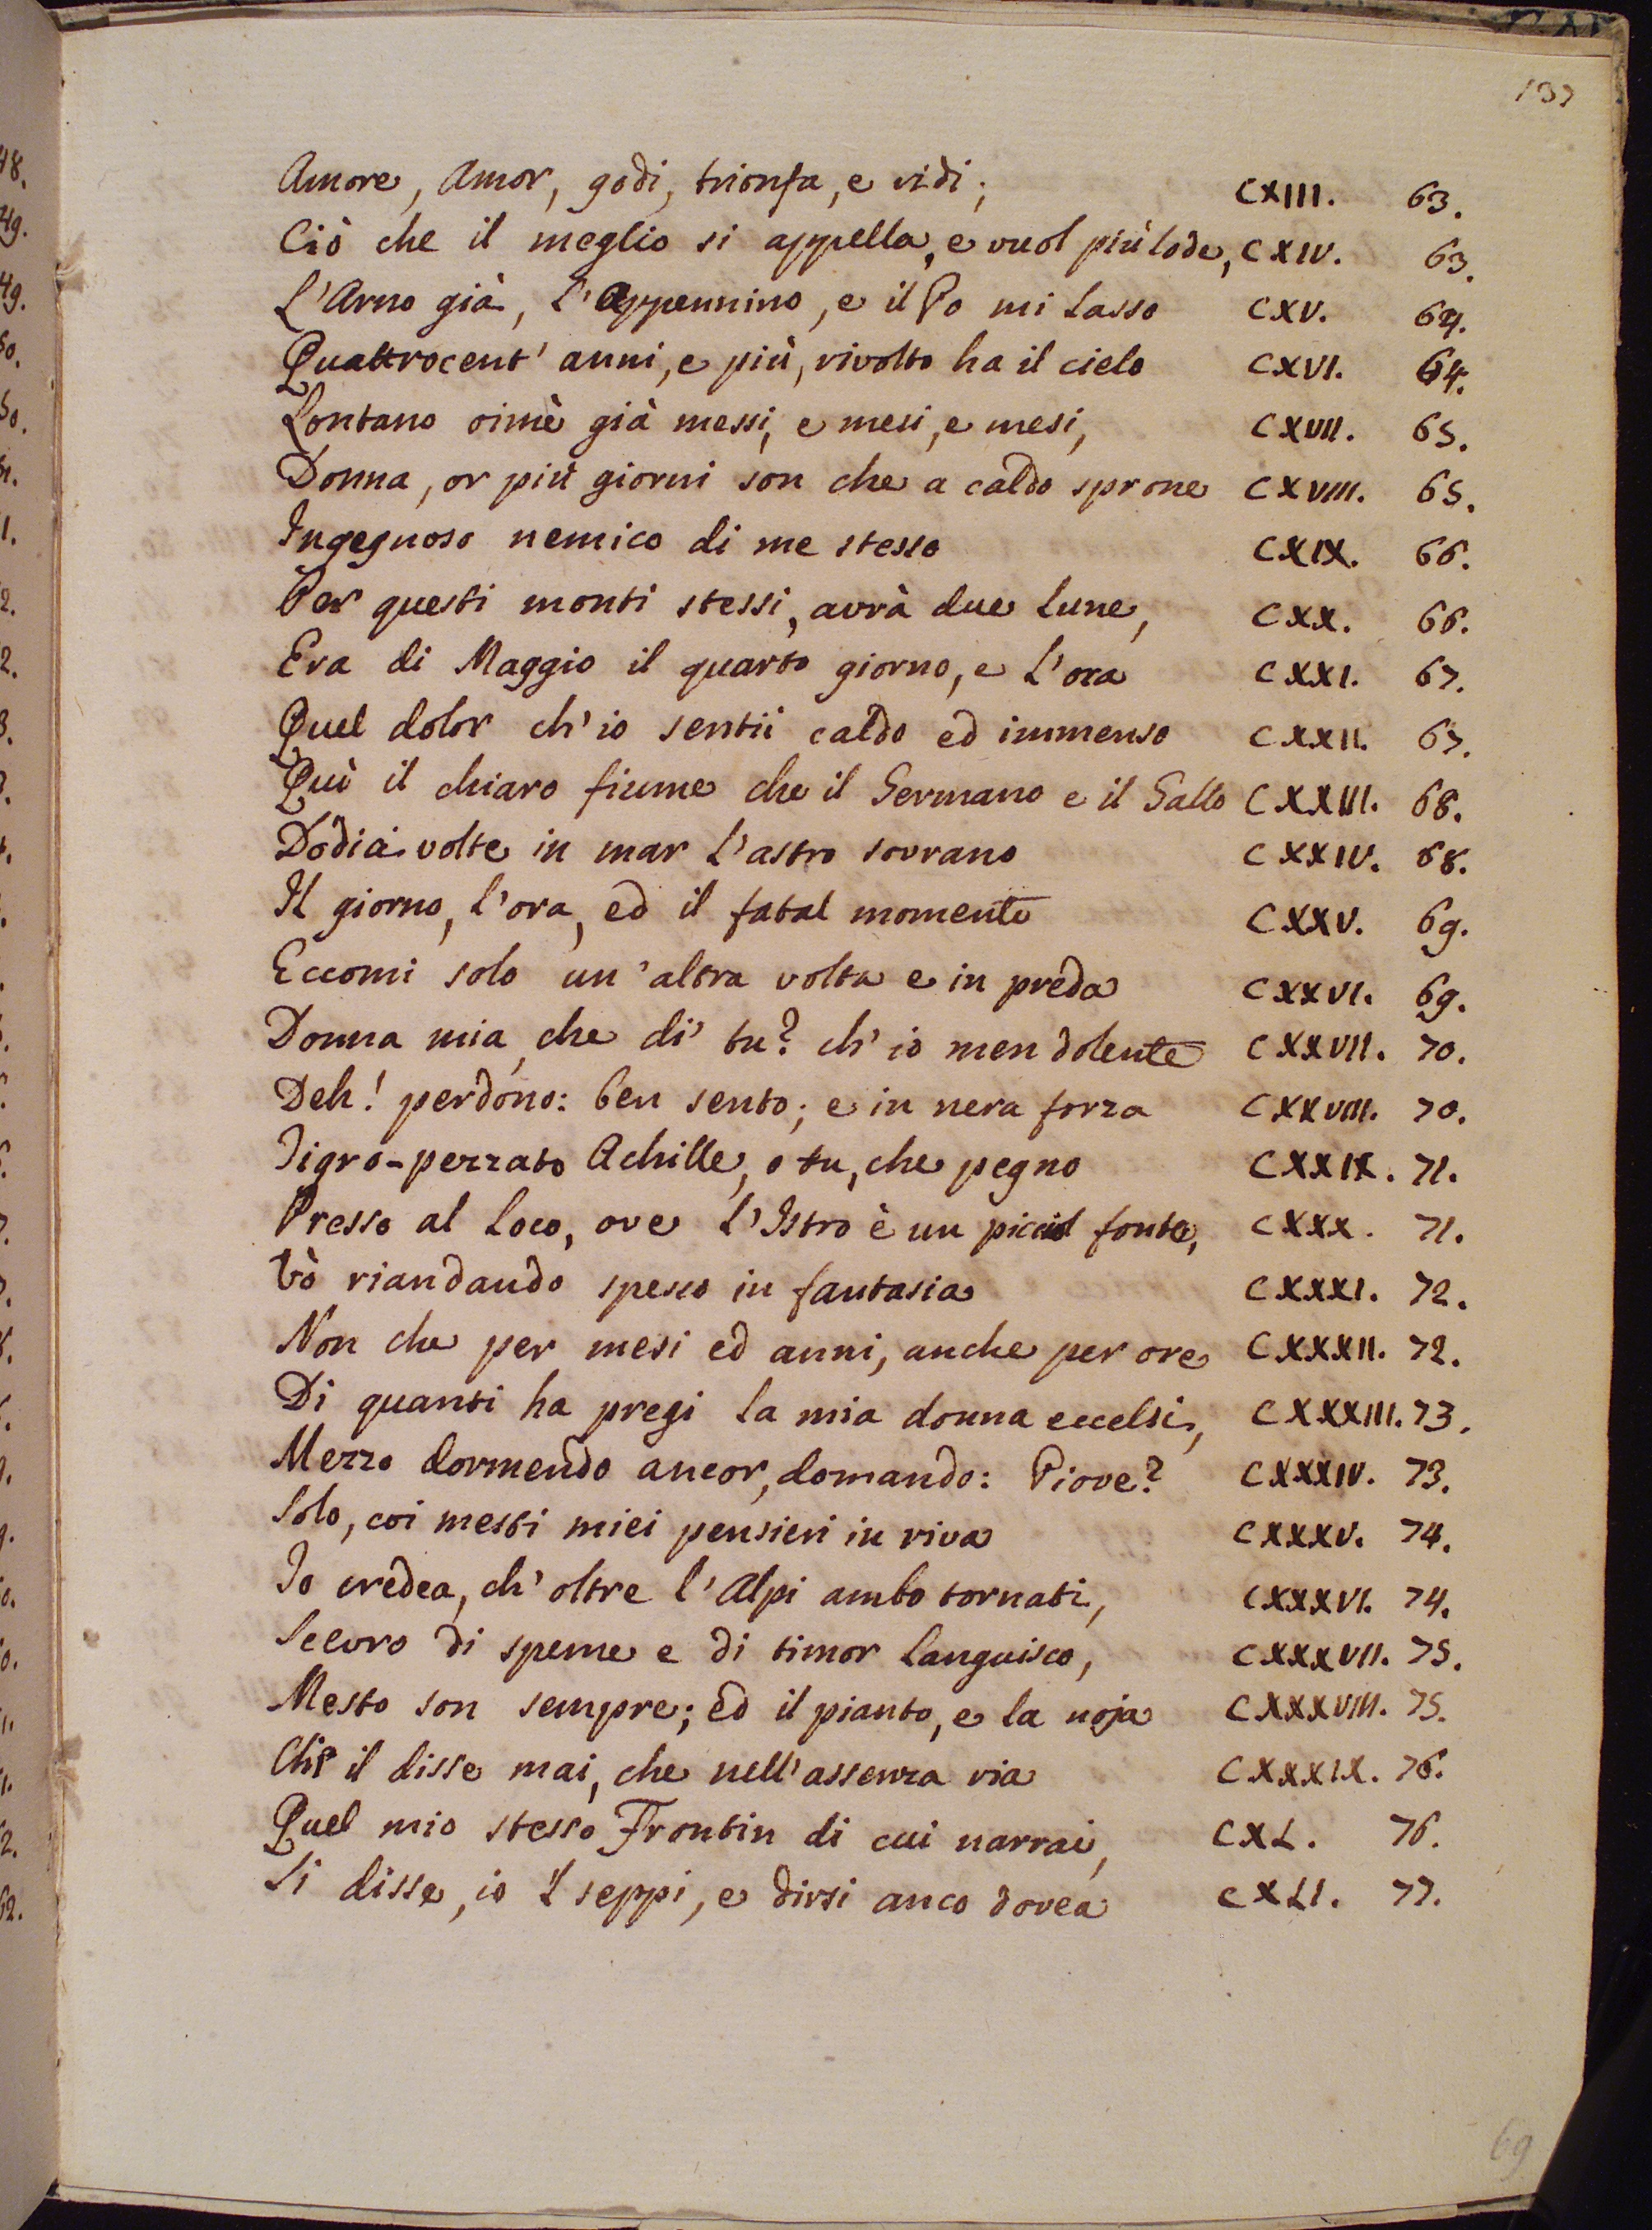 137
Amore, Amor, godi, trionfa, e ridi;	CXIII.	63.
Ciò che il meglio si appella, e vuol più lode,	CXIV.	63.
L'Arno già, l'Appennino, e il Po mi lasso	CXV.	64.
Quattrocent' anni, e più, rivolto ha il cielo	CXVI.	64.
Lontano oimè già messi, e mesi, e mesi,	CXVII.	65.
Donna, or più giorni son che a caldo sprone	CXVIII.	65.
Ingegnoso nemico di me stesso	CXIX.	66.
Per questi monti stessi, avrà due lune,	CXX.	66.
Era di Maggio il quarto giorno, e l'ora	CXXI.	67.
Quel dolor ch'io sentii caldo ed immenso	CXXII.	67.
Quì il chiaro fiume che il Germano e il Gallo	CXXIII.	68.
Dodici volte in mar l'astro sovrano	CXXIV.	68.
Il giorno, l'ora, ed il fatal momento	CXXV.	69.
Eccomi solo un'altra volta e in preda	CXXVI.	69.
Donna mia, che di' tu? ch'io men dolente	CXXVII.	70.
Deh! perdono: ben sento; e in nera forza	CXXVIII.	70.
Tigro-pezzato Achille, o tu, che pegno	CXXIX.	71.
Presso al loco, ove l'Istro è un picciol fonte,	CXXX.	71.
Vò riandando spesso in fantasia	CXXXI.	72.
Non che per mesi ed anni, anche per ore	CXXXII.	72.
Di quanti ha pregi la mia donna eccelsi,	CXXXIII.	73.
Mezzo dormendo ancor, domando: Piove?	CXXXIV.	73.
Solo, coi mesti miei pensieri in riva	CXXXV.	74.
Io credea, ch'oltre l'Alpi ambo tornati,	CXXXVI.	74.
Scevro di speme e di timor languisco,	CXXXVII.	75.
Mesto son sempre; ed il pianto, e la noja	CXXXVIII.	75.
Chi il disse mai, che nell'assenza via	CXXXIX.	76.
Quel mio stesso Frontin di cui narrai,	CXL.	76.
Si disse, io 'l seppi, e dirsi anco dovea	CXLI.	77.
69